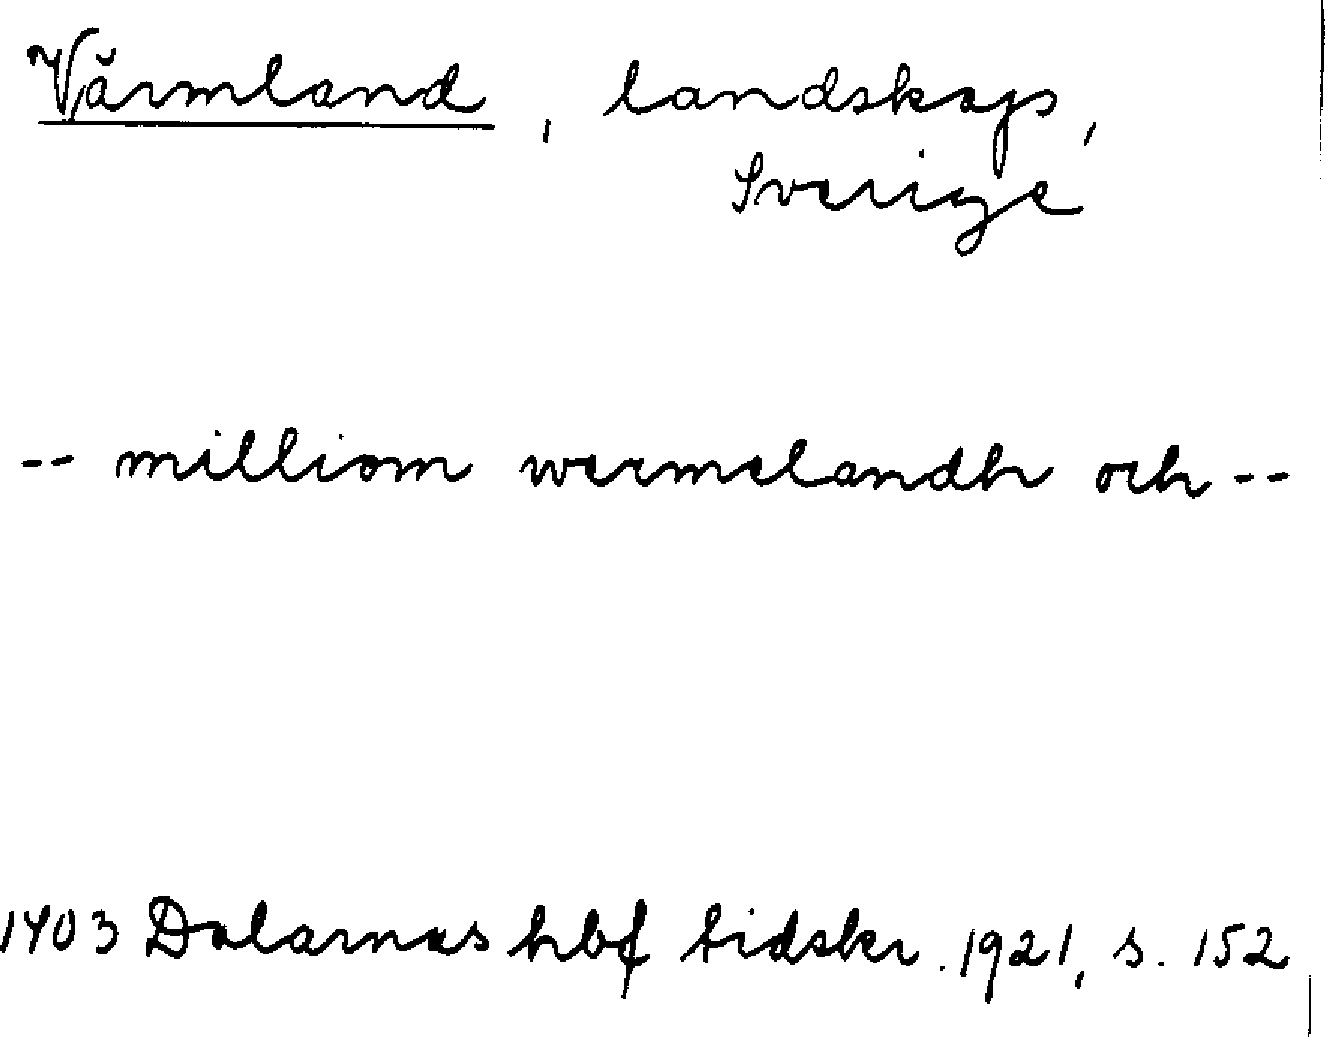 Värmland, landskap,
Sverige
-- milliom wermelandh och --
1403 Dalarnas hbf tidskr. 1921, s. 152